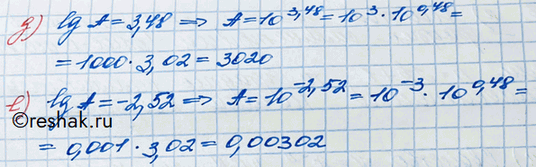 д) lg A = 3,48 ⟹ A = 10^3,48 = 10^3 · 10^0,48 =
= 1000 · 3,02 = 3020
©reshak.ru
е) lg A = -2,52 ⟹ A = 10^-2,52 = 10^-3 · 10^0,48 =
= 0,001 · 3,02 = 0,00302